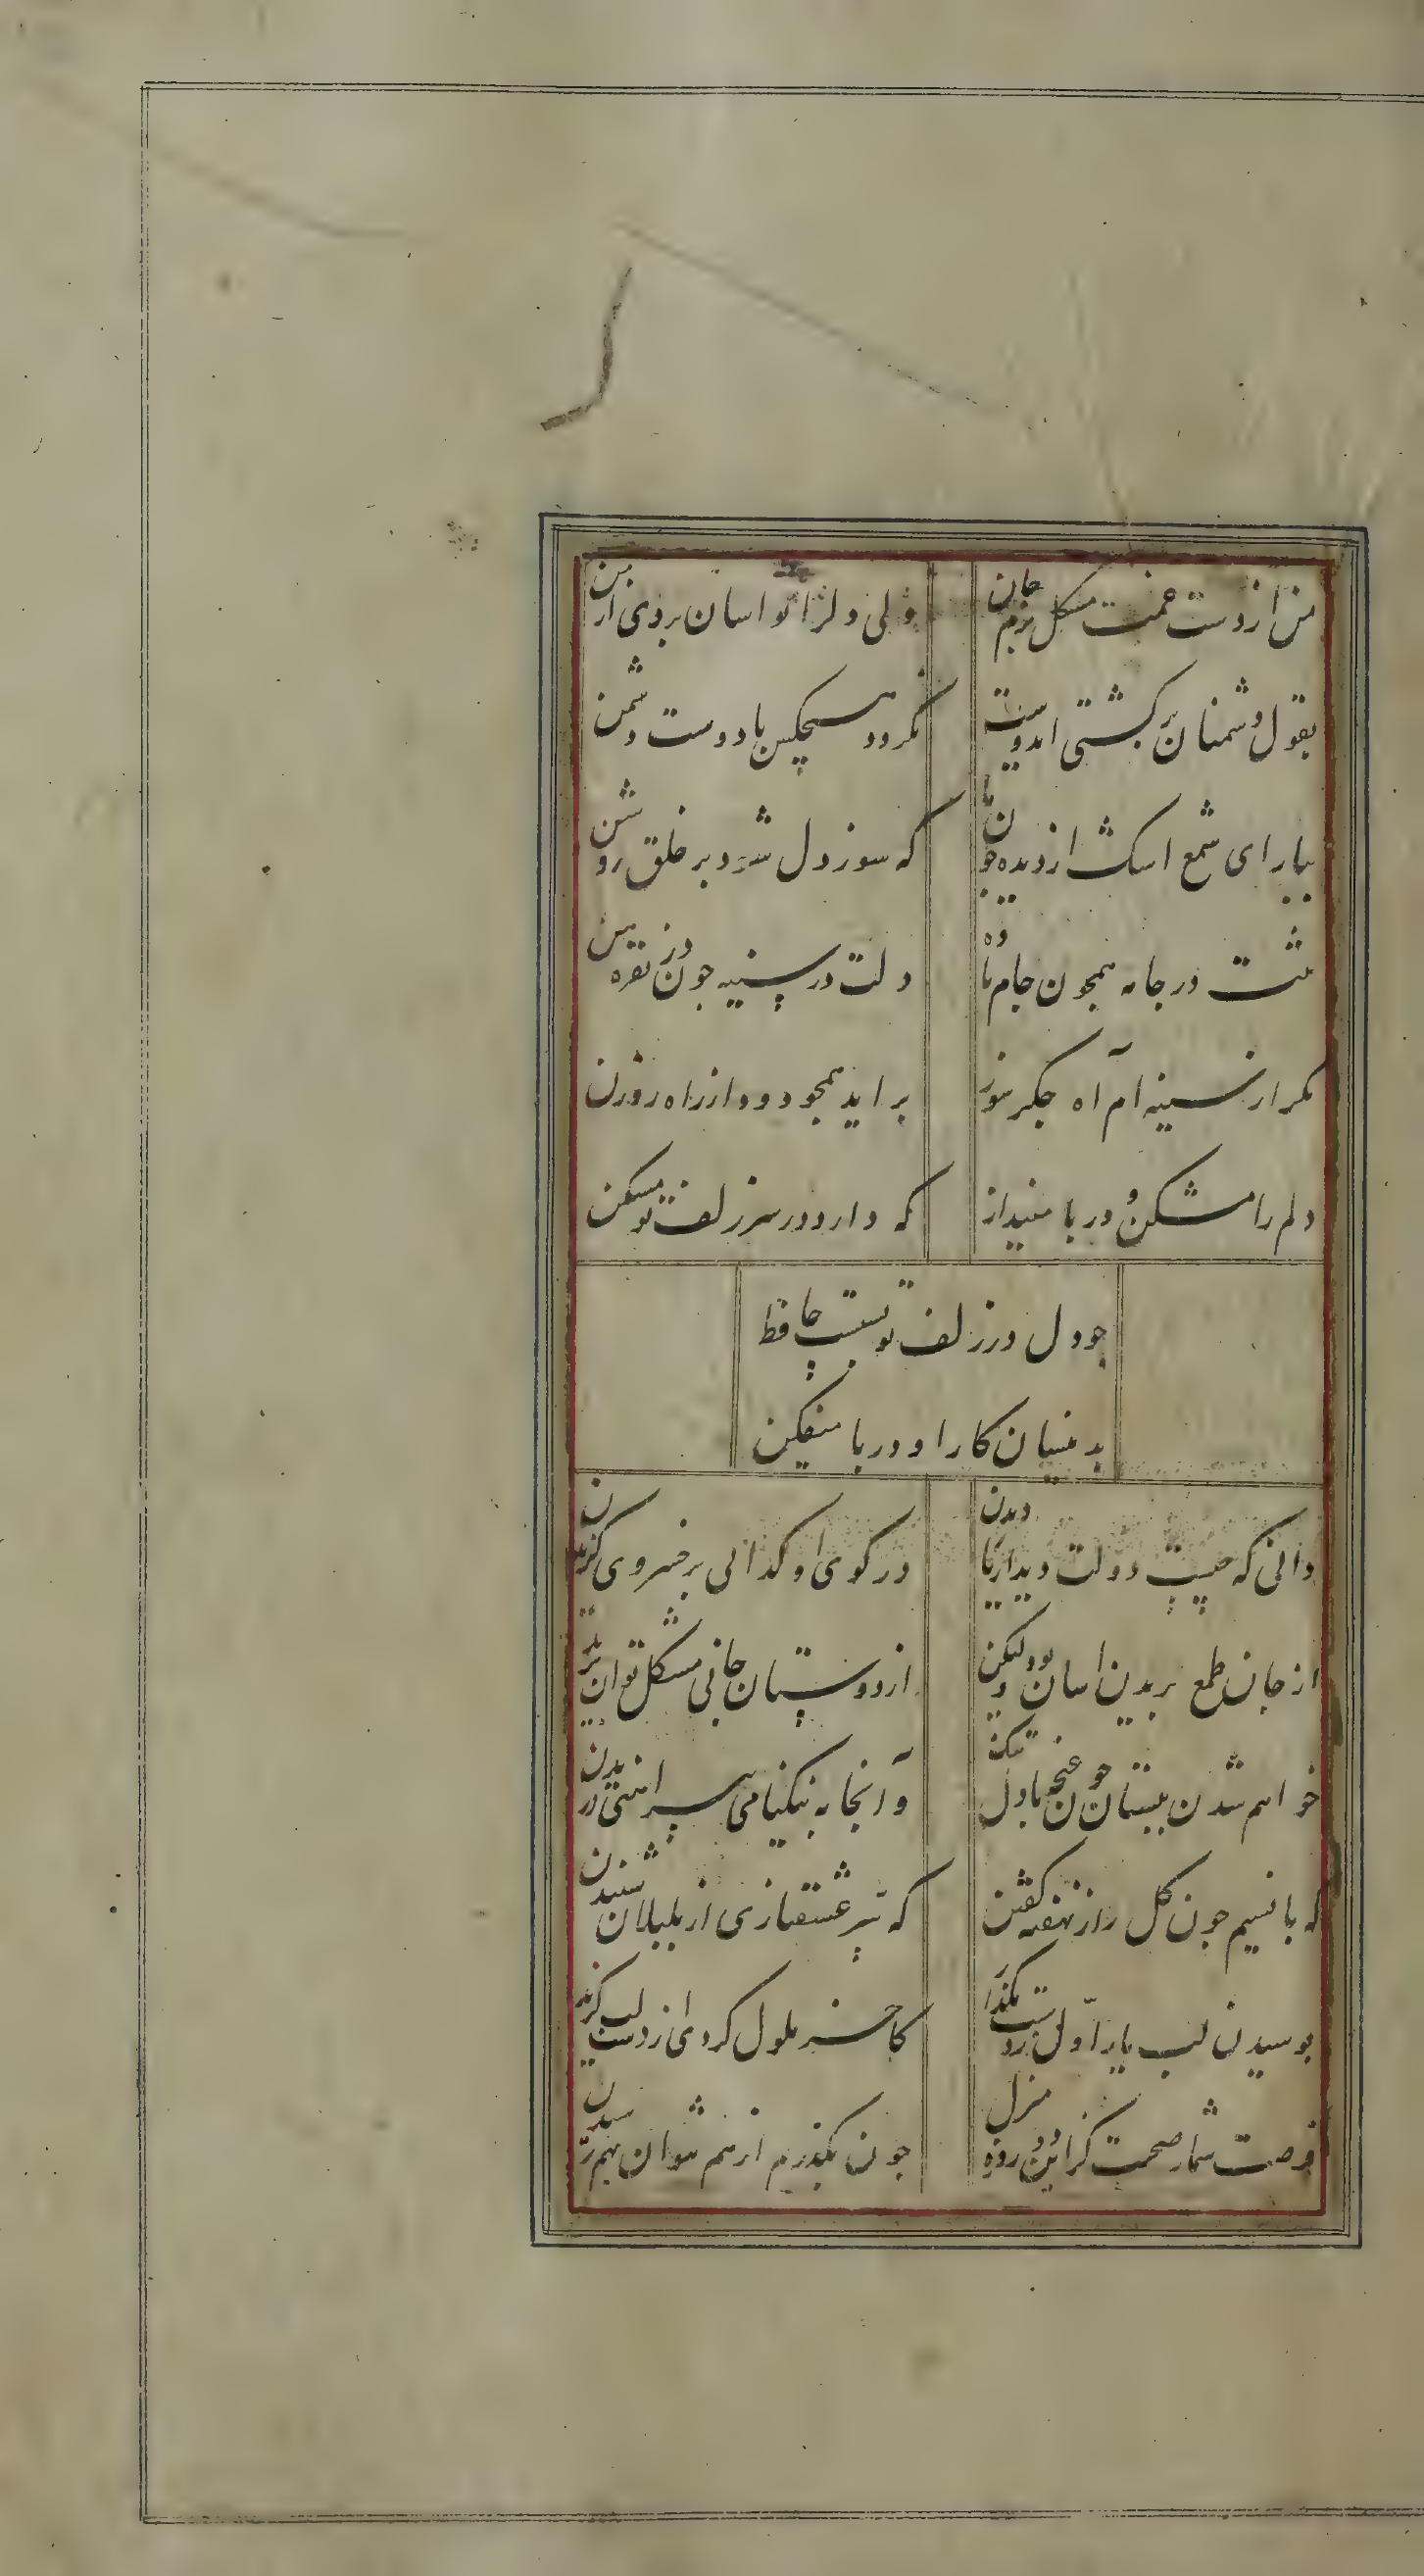 من از دست غمت مشکل برم جان
ولی دلرا تو اسان بردی از من
بقول دشمنان بر کشتی ایدوست
نکردد هیچکس با دوست دشمن
ببار ای شمع اشک از دیده جون
که سوز دل شود بر خلق روشن
تنت در جامه همچون جام باده
دلت در سینه جون در نقره اهن
مکر از سینه ام آه جکر سوز
بر اید همچو دود از راه روزن
دلم را مشکن و در پا مینداز
که دارد در سر زلف تو مسکن
جو دل در زلف تو بستست حافظ
بدینسان کار او در پا میفکن
دانی که چیست دولت دیدار یار دیدن
در کوی او کدائی بر خسروی کزیدن
از جان طمع بریدن اسان بود ولیکن
از دوستان جانی مشکل توان بریدن
خواهم شدن ببستان جون غنجه با دل تنک
وآنجا به نیکنامی پیراهنی دریدن
که با نسیم جون کل راز نهفته کفتن
که سر عشقبازی از بلبلان شنیدن
بوسیدن لب یار اول ز دست مکذار
کاخر ملول کردی از دست و لب کزیدن
فرصت شمار صحبت کز این دو روزه منزل
جون بکذریم از هم نتوان بهم رسیدن